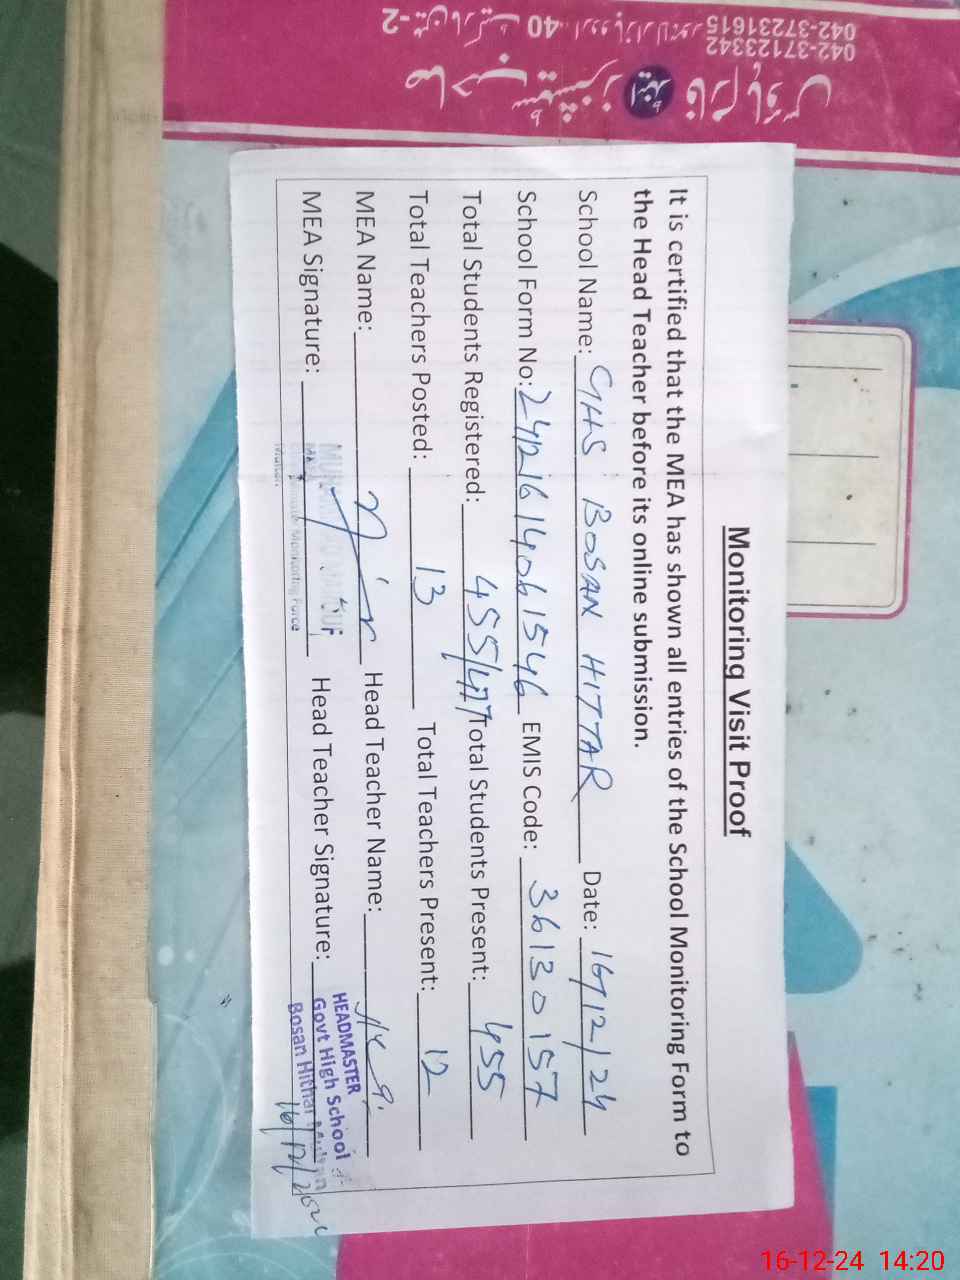 Monitoring Visit Proof
It is certified that the MEA has shown all entries of the School Monitoring Form to
the Head Teacher before its online submission.
School Name: GHS BOSAN HITTAR Date: 16/12/24
School Form No: 24121614061546 EMIS Code: 36130157
Total Students Registered: 455/477 Total Students Present: 455
Total Teachers Posted: 13 Total Teachers Present: 12
MEA Name: Head Teacher Name:
MEA Signature: Head Teacher Signature:
Monitoring Force
Multan
HEADMASTER
Govt High School
Bosan Hithar Multan
16/12/2024
صاحب پبلشرز اینڈ فارم ہاؤس
042-37123342
042-37231615
16-12-24 14:20